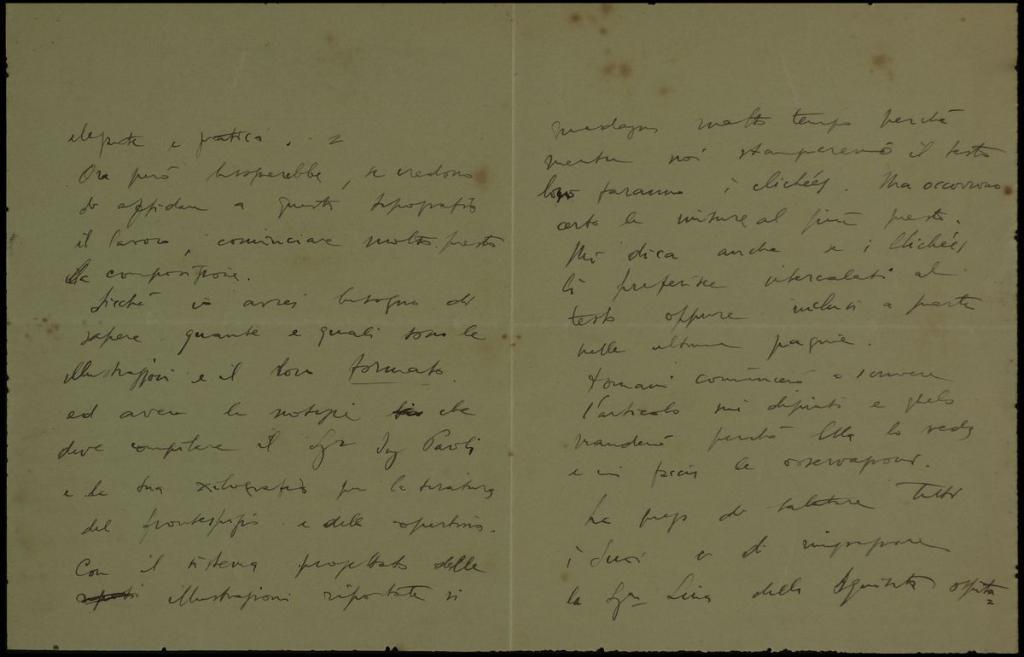 elegante e pratica. 2
Ora però bisognerebbe, se credono
di affidare a questa tipografia
il lavoro, cominciare molto presto
la composizione.
Sicché io avrei bisogno di
sapere quante e quali sono le
illustrazioni e il loro formato.
ed avere le notizie che
deve compilare il Sigr Ing Paoli
e la sua xilografia per la tiratura
del frontespizio e della copertina.
Con il sistema progettato delle
illustrazioni riportate si
guadagna molto tempo perché
mentre noi stamperemo il testo
loro faranno i clichées. Ma occorrono
certo le misure al più presto.
Mi dica anche se i Clichées
li preferisce intercalati al
testo oppure inclusi a parte
nelle ultime pagine.
Domani comincerò a scrivere
l'articolo sui dipinti e glielo
manderò perché Ella lo veda
e mi faccia le osservazioni.
La prego di salutare Tutti
i Suoi e di ringraziare
la Sgra Lina della squisita ospita=